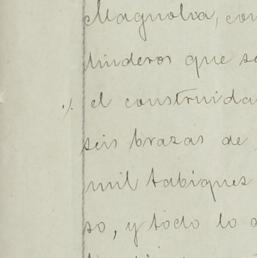 Magnolia, con
linderos que se
el construida
seis brazas de
mil tabiques
so, y todo lo a